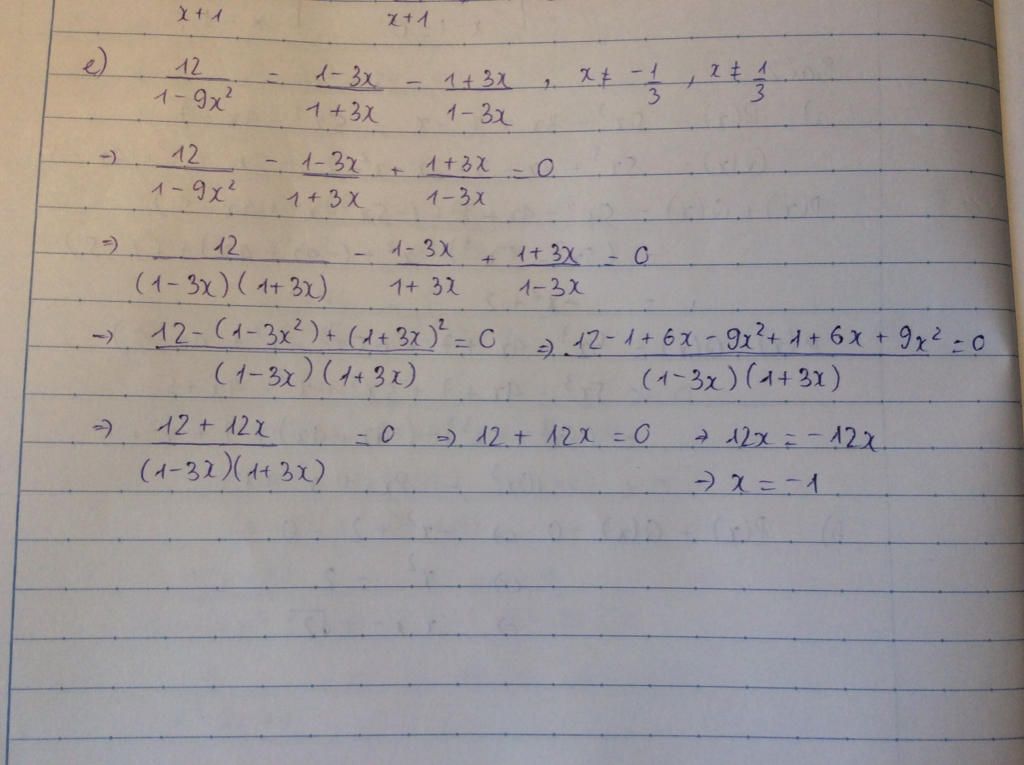 x+1 x+1
e) 12/(1-9x²) = (1-3x)/(1+3x) - (1+3x)/(1-3x) , x ≠ -1/3 , x ≠ 1/3
→ 12/(1-9x²) - (1-3x)/(1+3x) + (1+3x)/(1-3x) = 0
⇒ 12/((1-3x)(1+3x)) - (1-3x)/(1+3x) + (1+3x)/(1-3x) = 0
→ (12-(1-3x²)+(1+3x)²)/((1-3x)(1+3x)) = 0 ⇒ (12-1+6x-9x²+1+6x+9x²)/((1-3x)(1+3x)) = 0
⇒ (12+12x)/((1-3x)(1+3x)) = 0 ⇒ 12+12x = 0 → 12x = -12x
→ x = -1